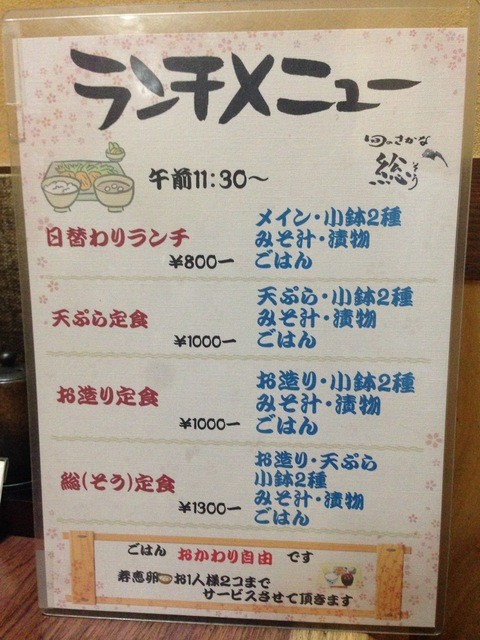 ランチメニュー
旬のさかな
総
そう
午前11:30〜
日替わりランチ
¥800ー
メイン・小鉢2種
みそ汁・漬物
ごはん
天ぷら定食
¥1000ー
天ぷら・小鉢2種
みそ汁・漬物
ごはん
お造り定食
¥1000ー
お造り・小鉢2種
みそ汁・漬物
ごはん
総(そう)定食
¥1300ー
お造り・天ぷら
小鉢2種
みそ汁・漬物
ごはん
ごはん おかわり自由 です
寿恵卵 お1人様2コまで
サービスさせて頂きます